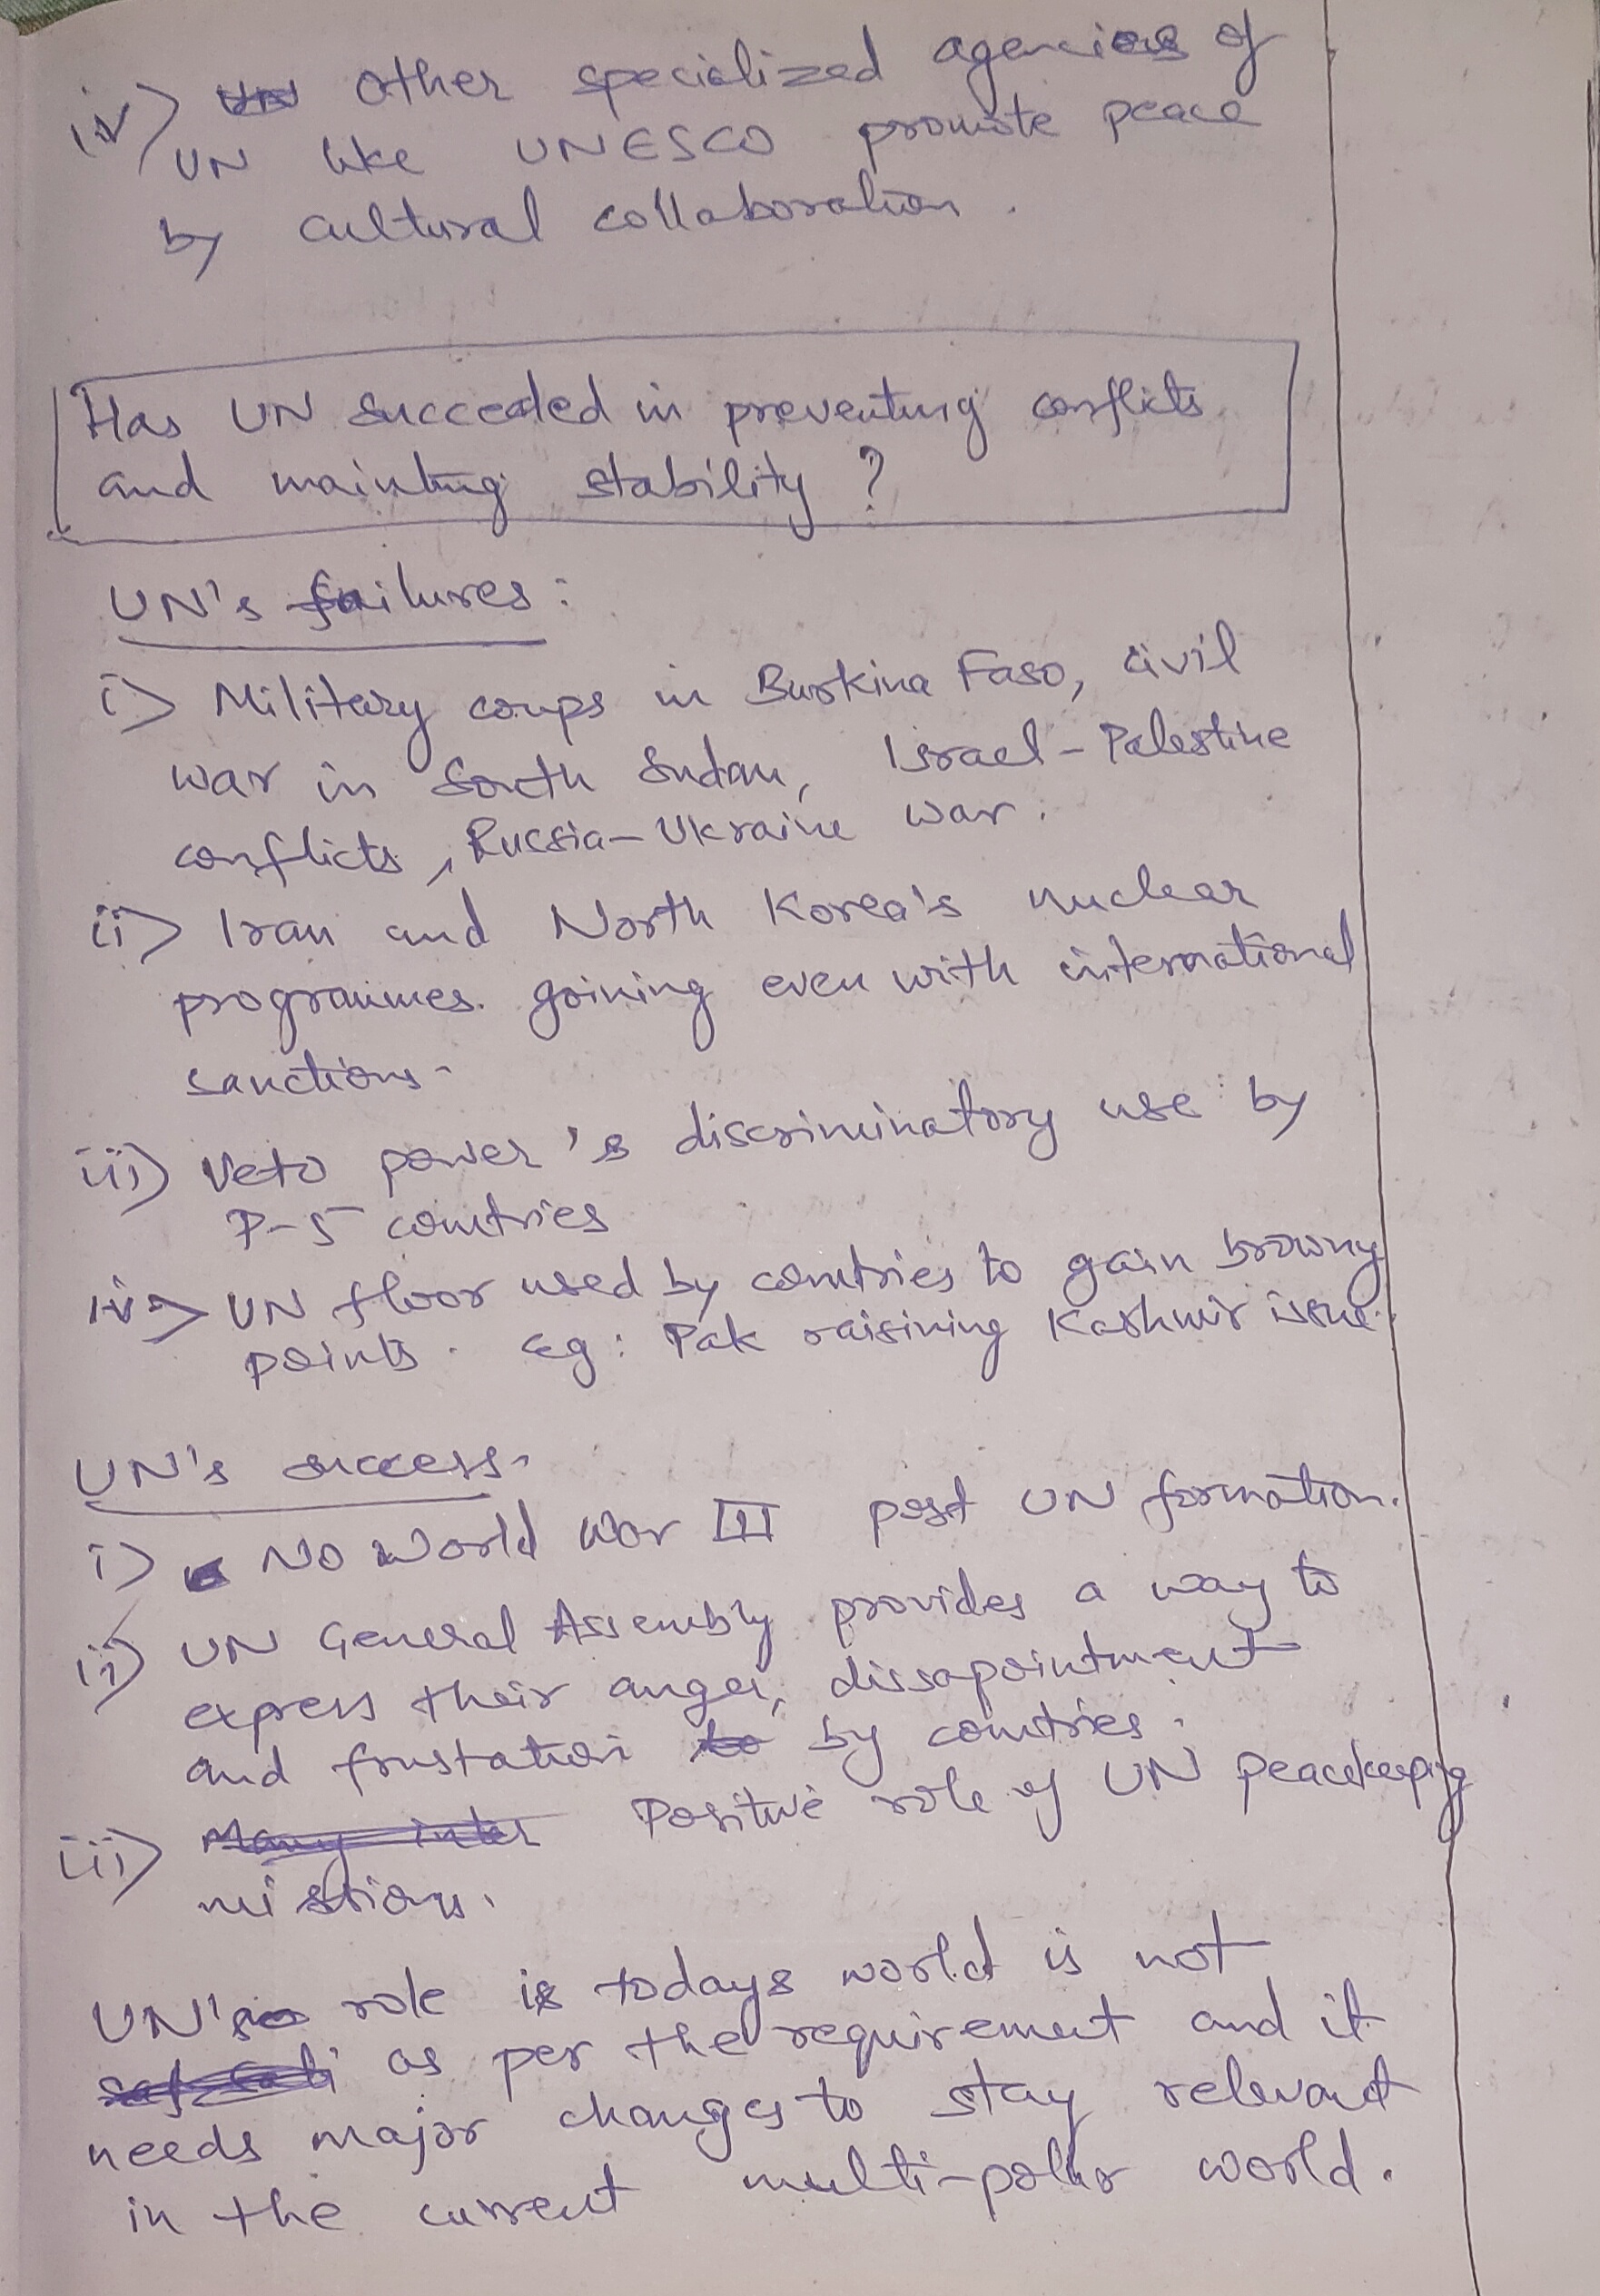 iv) UN Other specialized agencies of
UN like UNESCO promote peace
by cultural collaboration.
Has UN succeeded in preventing conflicts
and mainting stability ?
UN's failures :
i) Military coups in Burkina Faso, civil
war in South Sudan, Israel-Palestine
conflicts, Russia-Ukraine war.
ii) Iran and North Korea's nuclear
programmes. goining even with international
sanctions.
iii) Veto power's discriminatory use by
P-5 countries
iv) UN floor used by countries to gain browny
points. eg: Pak raisining Kashmir issue.
UN's success.
i) No World War III post UN formation.
ii) UN General Assembly provides a way to
express their anger, dissapointment
and frustation to by countries.
iii) Many inter Positive role of UN peacekeeping
missions.
UN's role is todays world is not
as per the requirement and it
needs major changes to stay relevant
in the current multi-polar world.